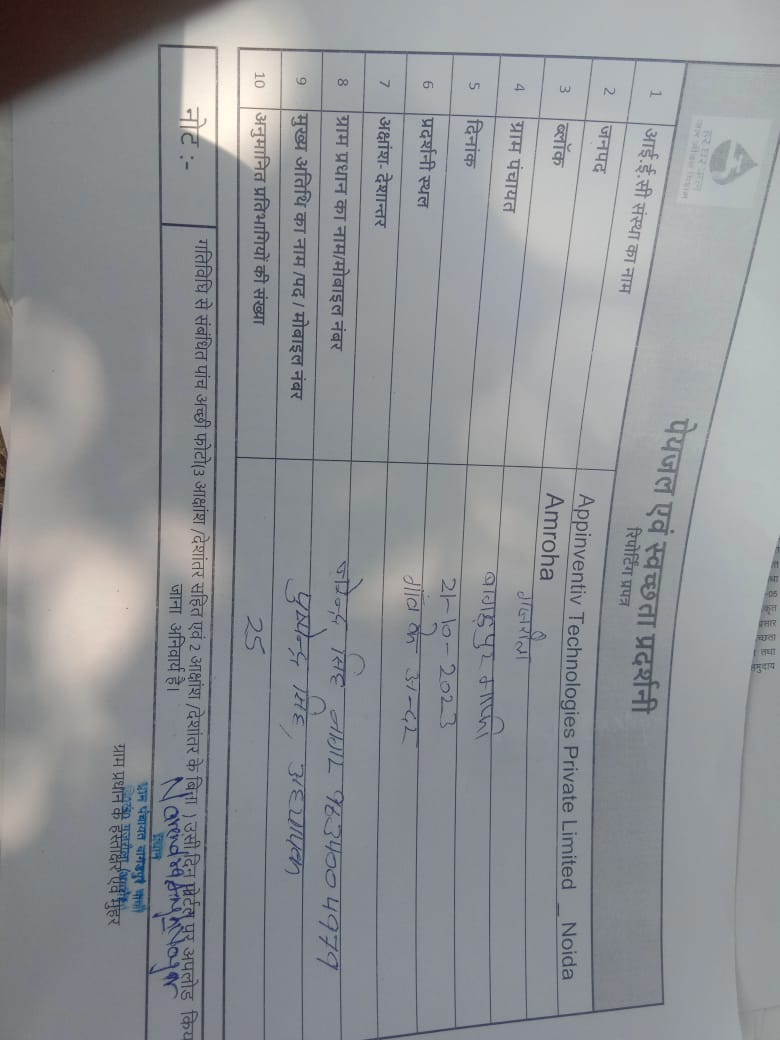 हर घर जल
जल जीवन मिशन
पेयजल एवं स्वच्छता प्रदर्शनी
रिपोर्टिंग प्रपत्र
1 आई.ई.सी संस्था का नाम Appinventiv Technologies Private Limited _ Noida
2 जनपद Amroha
3 ब्लॉक गजरौला
4 ग्राम पंचायत
5 दिनांक 21-10-2023
6 प्रदर्शनी स्थल गाँव के अन्दर
7 अक्षांश- देशान्तर
8 ग्राम प्रधान का नाम/मोबाइल नंबर सिंह नागर 9634004979
9 मुख्य अतिथि का नाम /पद / मोबाइल नंबर पुष्पेन्द्र सिंह, अध्यापक
10 अनुमानित प्रतिभागियों की संख्या 25
नोट :- गतिविधि से संबंधित पांच अच्छी फोटो(3 आक्षांश /देशांतर सहित एवं 2 आक्षांश /देशांतर के बिना ) उसी दिन पोर्टल पर अपलोड किय
जाना अनिवार्य है।
प्रधान
ग्राम पंचायत
ग्राम प्रधान के हस्ताक्षर एवं मुहर